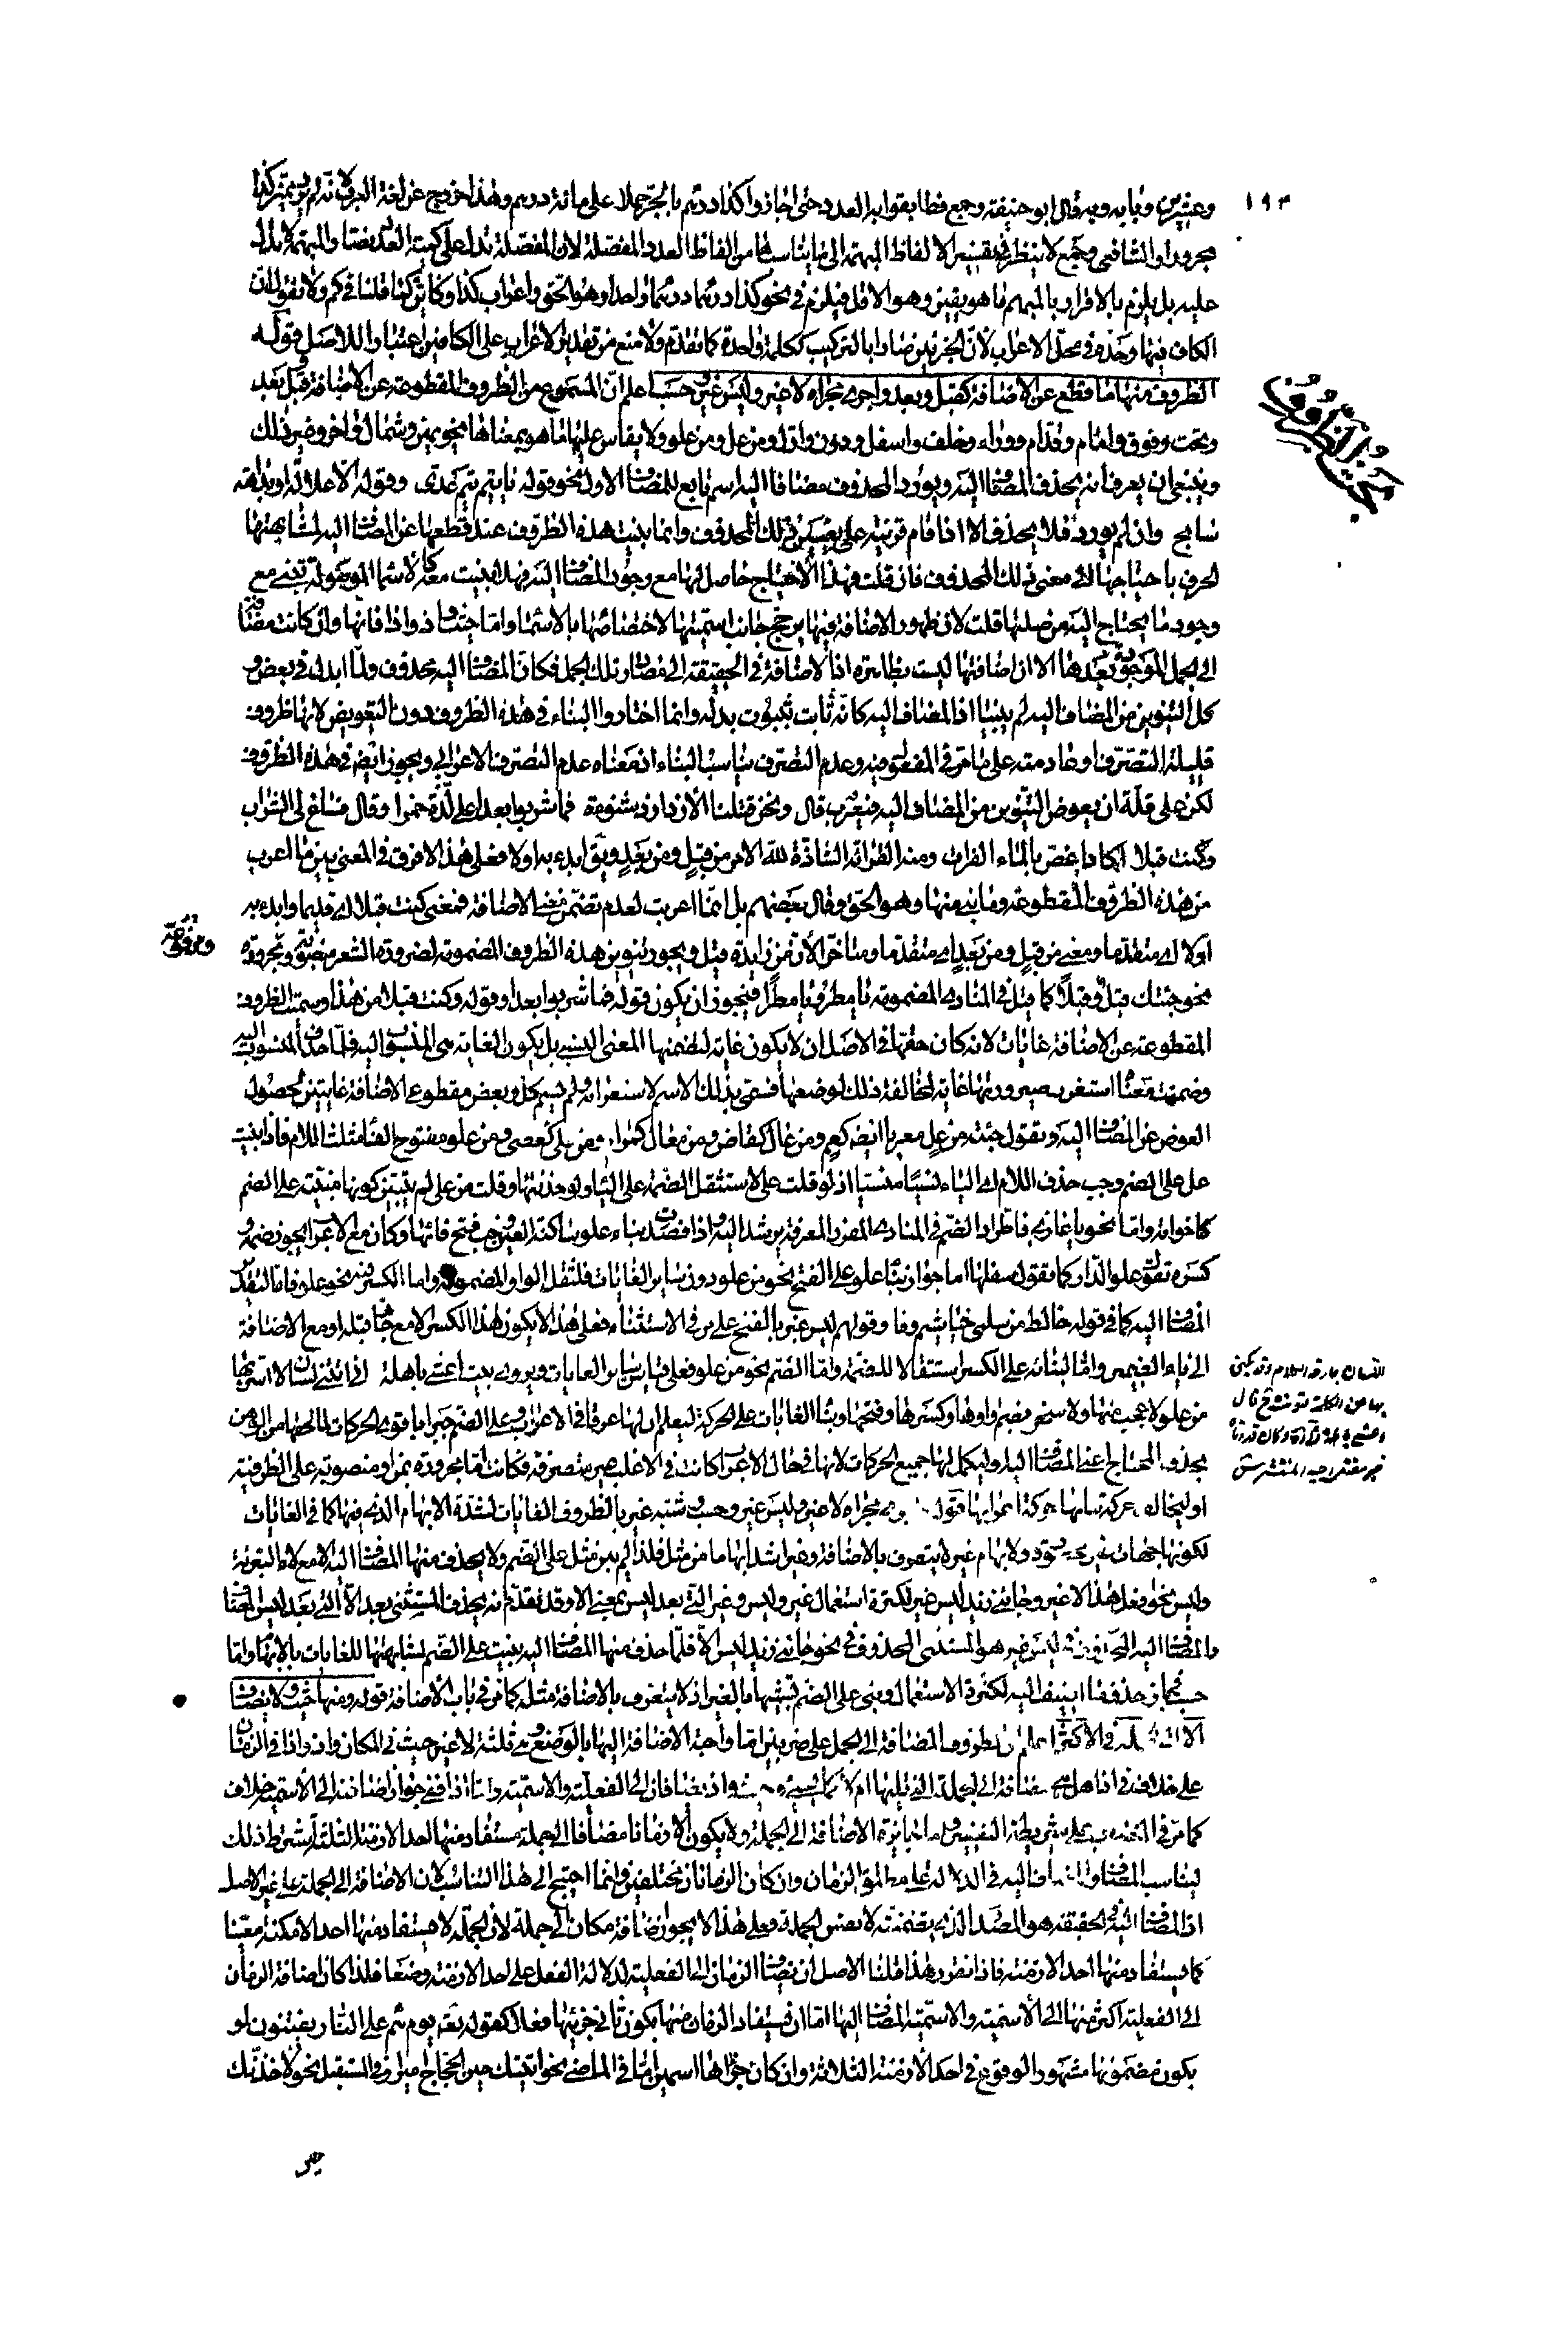 ١٩٣
وعشرين وبابه وبه قال ابو حنيفة رحمه فطابقوا به العدد حتى اجازوا كذا درهم بالجر حملا على مائة درهم وهذا خروج عن لغة العرب لانه لم يرد مميز كذا
مجرورا والشافعي رحمه لا ينظر في تفسير الالفاظ المبهمة الى ما يناسبها من الفاظ العدد المفصلة لان المفصلة تدل على كمية العدد نصا والمبهمة لا تدل
عليه بل يلزم بالاقرار بالمبهم ما هو يقين وهو الاقل فيلزم في نحو كذا درهما درهما واحدا وهو الحق واعراب كذا وكاين كما قلنا في كم ولا نقول ان
الكاف فيهما وحده في محل الاعراب لان الجزئين صارا بالتركيب ككلمة واحدة كما تقدم ولا منع من تقدير الاعراب على الكافين اعتبارا للاصل قوله
الظروف منها ما قطع عن الاضافة كقبل وبعد واجرى مجراه لا غير وليس غير وحسب اعلم ان المسموع من الظروف المقطوعة عن الاضافة قبل وبعد
وتحت وفوق وامام وقدام ووراء وخلف واسفل ودون واول ومن عل ومن علو ولا يقاس عليها ما هو بمعناها نحو يمين وشمال واخر وغير ذلك
وينبغي ان يعرف انه يحذف المضاف اليه ويورد المحذوف مضافا اليه اسم تابع للمضاف الاول نحو قوله يا تيم تيم عدى وقوله الا علالة او بداهة
سابح وان لم يورد فلا يحذف الا اذا قام قرينة على تعيين ذلك المحذوف وانما بنيت هذه الظروف عند قطعها عن المضاف اليه لمشابهتها
الحرف باحتياجها الى معنى ذلك المحذوف فان قلت فهذا الاحتياج حاصل لها مع وجود المضاف اليه فهلا بنيت معه كالاسماء الموصولة تبنى مع
وجود ما يحتاج اليه من صلتها قلت لان ظهور الاضافة فيها يرجح جانب اسميتها لاختصاصها بالاسماء واما حيث واذ واذا فانها وان كانت مضافة
الى الجمل الموجودة بعدها الا ان اضافتها ليست بظاهرة اذ الاضافة في الحقيقة الى مصادر تلك الجمل فكان المضاف اليه محذوف ولما ابدل في بعض و
كل التنوين من المضاف اليه لم يبنيا اذ المضاف اليه كانه ثابت بثبوت بدله وانما اختاروا البناء في هذه الظروف دون التعويض لانها ظروف
قليلة التصرف او عادمته على ما مر في المفعول فيه وعدم التصرف يناسب البناء اذ معناه عدم التصرف الاعرابي ويجوز ايضا في هذه الظروف
لكن على قلة ان يعوض التنوين من المضاف اليه فيعرب قال ونحن قتلنا الازد ازد شنوءة فما شربوا بعدا على لذة خمرا وقال فساغ لي الشراب
وكنت قبلا اكاد اغص بالماء الفرات ومنه القراءة الشاذة لله الامر من قبل ومن بعد ويق ابدء به اولا فعلى هذا لا فرق في المعنى بين ما اعرب
من هذه الظروف المقطوعة وما بني منها وهو الحق وقال بعضهم بل انما اعربت لعدم تضمن معنى الاضافة فمعنى كنت قبلا اي قديما وابدء به
اولا اي متقدما ومعنى من قبل ومن بعد اي متقدما ومتاخرا لان من زايدة قيل ويجوز تنوين هذه الظروف المضمومة لضرورة الشعر
نحو جئتك قبل وقبلا كما قيل في المنادى المضموم يا مطر ويا مطرا فيجوز ان يكون قوله فما شربوا بعدا وقوله وكنت قبلا من هذا وسميت الظروف
المقطوعة عن الاضافة غايات لانه كان حقها في الاصل ان لا يكون غاية لتضمنها المعنى النسبي بل يكون الغاية هي المنسوب اليه فلما حذف المنسوب اليه
وضمنت معناه استغرب صيرورتها غاية لمخالفة ذلك لوضعها فسمي بذلك الاسم لاستغرابه ولم يسم كل وبعض مقطوعي الاضافة غايتين لحصول
العوض عن المضاف اليه وتقول جئته من عل معربا ايضا كعم ومن عال كقاض ومن معال كمرام ومن على كعصى ومن علو مفتوح الفاء مثلث اللام فاذا بنيت
عل على الضم وجب حذف اللام اي الياء نسيا منسيا اذ لو قلت على لاستثقل الضمة على الياء ولو حذفتها وقلت من على لم يتبين كونها مبنية على الضم
كاخواته واما نحو يا غازي فاطراد الضم في المنادى المفرد المعرفة يرشد اليه واذا قصدت بناء علو ساكنة العين وجب فتح فائها وكان مع الاعراب يجوز ضمه و
كسره تقول علو الدار كما تقول سفلها اما جواز بناء علو على الفتح نحو من علو دون ساير الغايات فلثقل الواو المضمومة واما الكسر فيه نحو من علو فاما لتقدير
المضاف اليه كما في قوله خالط من سلمى خياشيم وفا وقولهم ليس غير بالفتح على ما مر في الاستثناء فعلى هذا لا يكون هذا الكسر الا مع جار قبله او مع الاضافة
الى ياء الضمير واما لبنائه على الكسر استثقالا للضمة واما الضم نحو من علو فعلى قياس ساير الغايات ويروى بيت اعشى باهلة اني اتتني لسان لا اسر بها
من علو لا عجب منها ولا سخر بضم واوها وكسرها وفتحها وبناء الغايات على الحركة ليعلم ان لها عرقا في الاعراب وعلى الضم جبرا باقوى الحركات لما لحقها من الوهن
بحذف المحتاج اعني المضاف اليه وليكمل لها جميع الحركات لانها في حال الاعراب كانت في الاغلب غير متصرفة فكانت اما مجرورة بمن او منصوبة على الظرفية
او ليخالف حركة بنائها حركة اعرابها قوله واجرى مجراه لا غير وليس غير وحسب شبه غير بالظروف الغايات لشدة الابهام الذي فيها كما في الغايات
لكونها جهات غير محدودة ولابهام غير لا يتعرف بالاضافة وغير اشد ابهاما من مثل فلذا لم يبن مثل على الضم ولا يحذف منها المضاف اليه الا مع لا التبرئة
وليس نحو افعل هذا لا غير وجاءني زيد ليس غير لكثرة استعمال غير وليس وغير التي بعد ليس بمعنى الا وقد تقدم انه يحذف المستثنى بعد الا التي بعد ليس
والمضاف اليه المحذوف في ليس غير هو المستثنى المحذوف في نحو جاءني زيد ليس الا فلما حذف منها المضاف اليه بنيت على الضم لمشابهتها للغايات بالابهام واما
حسب فجاز حذف ما اضيف اليه لكثرة الاستعمال وبني على الضم تشبيها بالغير اذ لا يتعرف بالاضافة مثله كما مر في باب الاضافة قوله ومنها حيث ولا يضاف
الا الى جملة في الاكثر اعلم ان الظروف المضافة الى الجمل على ضربين اما واجبة الاضافة اليها بالوضع وهي ثلثة لا غير حيث في المكان واذ واذا في الزمان
على خلاف في اذا هل هي مضافة الى الجملة التي تليها ام لا كما يجيء وحيث واذ يضافان الى الفعلية والاسمية واما اذا ففي جواز اضافته الى الاسمية خلاف
كما مر في المنصوب على شريطة التفسير واما جايزة الاضافة الى الجملة ولا يكون الا زمانا مضافا الى جملة مستفاد منها احد الازمنة الثلثة اشترط ذلك
ليتناسب المضاف والمضاف اليه في الدلالة على مطلق الزمان وان كان الزمانان مختلفين وانما احتيج الى هذا التناسب لان الاضافة الى الجملة على غير الاصل
اذ المضاف اليه في الحقيقة هو المصدر الذي تضمنته لا نفس الجملة وعلى هذا لا يجوز اضافة مكان الى جملة لان الجملة لا يستفاد منها احد الامكنة معينا
كما يستفاد منها احد الازمنة فاذا تقرر هذا قلنا الاصل ان يضاف الزمان الى الفعلية لدلالة الفعل على احد الازمنة وضعا فلذا كان اضافة الزمان
الى الفعلية اكثر منها الى الاسمية والاسمية المضاف اليها اما ان يستفاد الزمان منها بكون ثاني جزئيها فعلا كقوله تعه يوم هم على النار يفتنون او
بكون مضمونها مشهور الوقوع في احد الازمنة الثلاثة وان كان جزءاها اسمين اما في الماضي نحو اتيتك حين الحجاج امير او في المستقبل نحو لاخذنك
مبحث الظروف